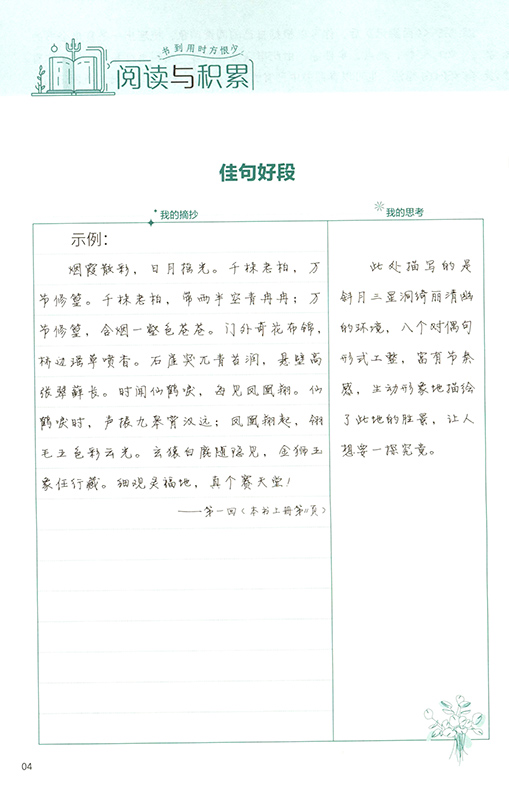 书到用时方恨少
阅读与积累
佳句好段
我的摘抄
示例：
烟霞散彩，日月摇光。千株老柏，万
节修篁。千株老柏，带雨半空青冉冉；万
节修篁，含烟一壑色苍苍。门外奇花布锦，
桥边瑶草喷香。石崖突兀青苔润，悬壁高
张翠藓长。时闻仙鹤唳，每见凤凰翔。仙
鹤唳时，声振九皋霄汉远；凤凰翔起，翎
毛五色彩云光。玄猿白鹿随隐见，金狮玉
象任行藏。细观灵福地，真个赛天堂！
——第一回（本书上册第11页）
我的思考
此处描写的是
斜月三星洞绮丽清幽
的环境，八个对偶句
形式工整，富有节奏
感，生动形象地描绘
了此地的胜景，让人
想要一探究竟。
04